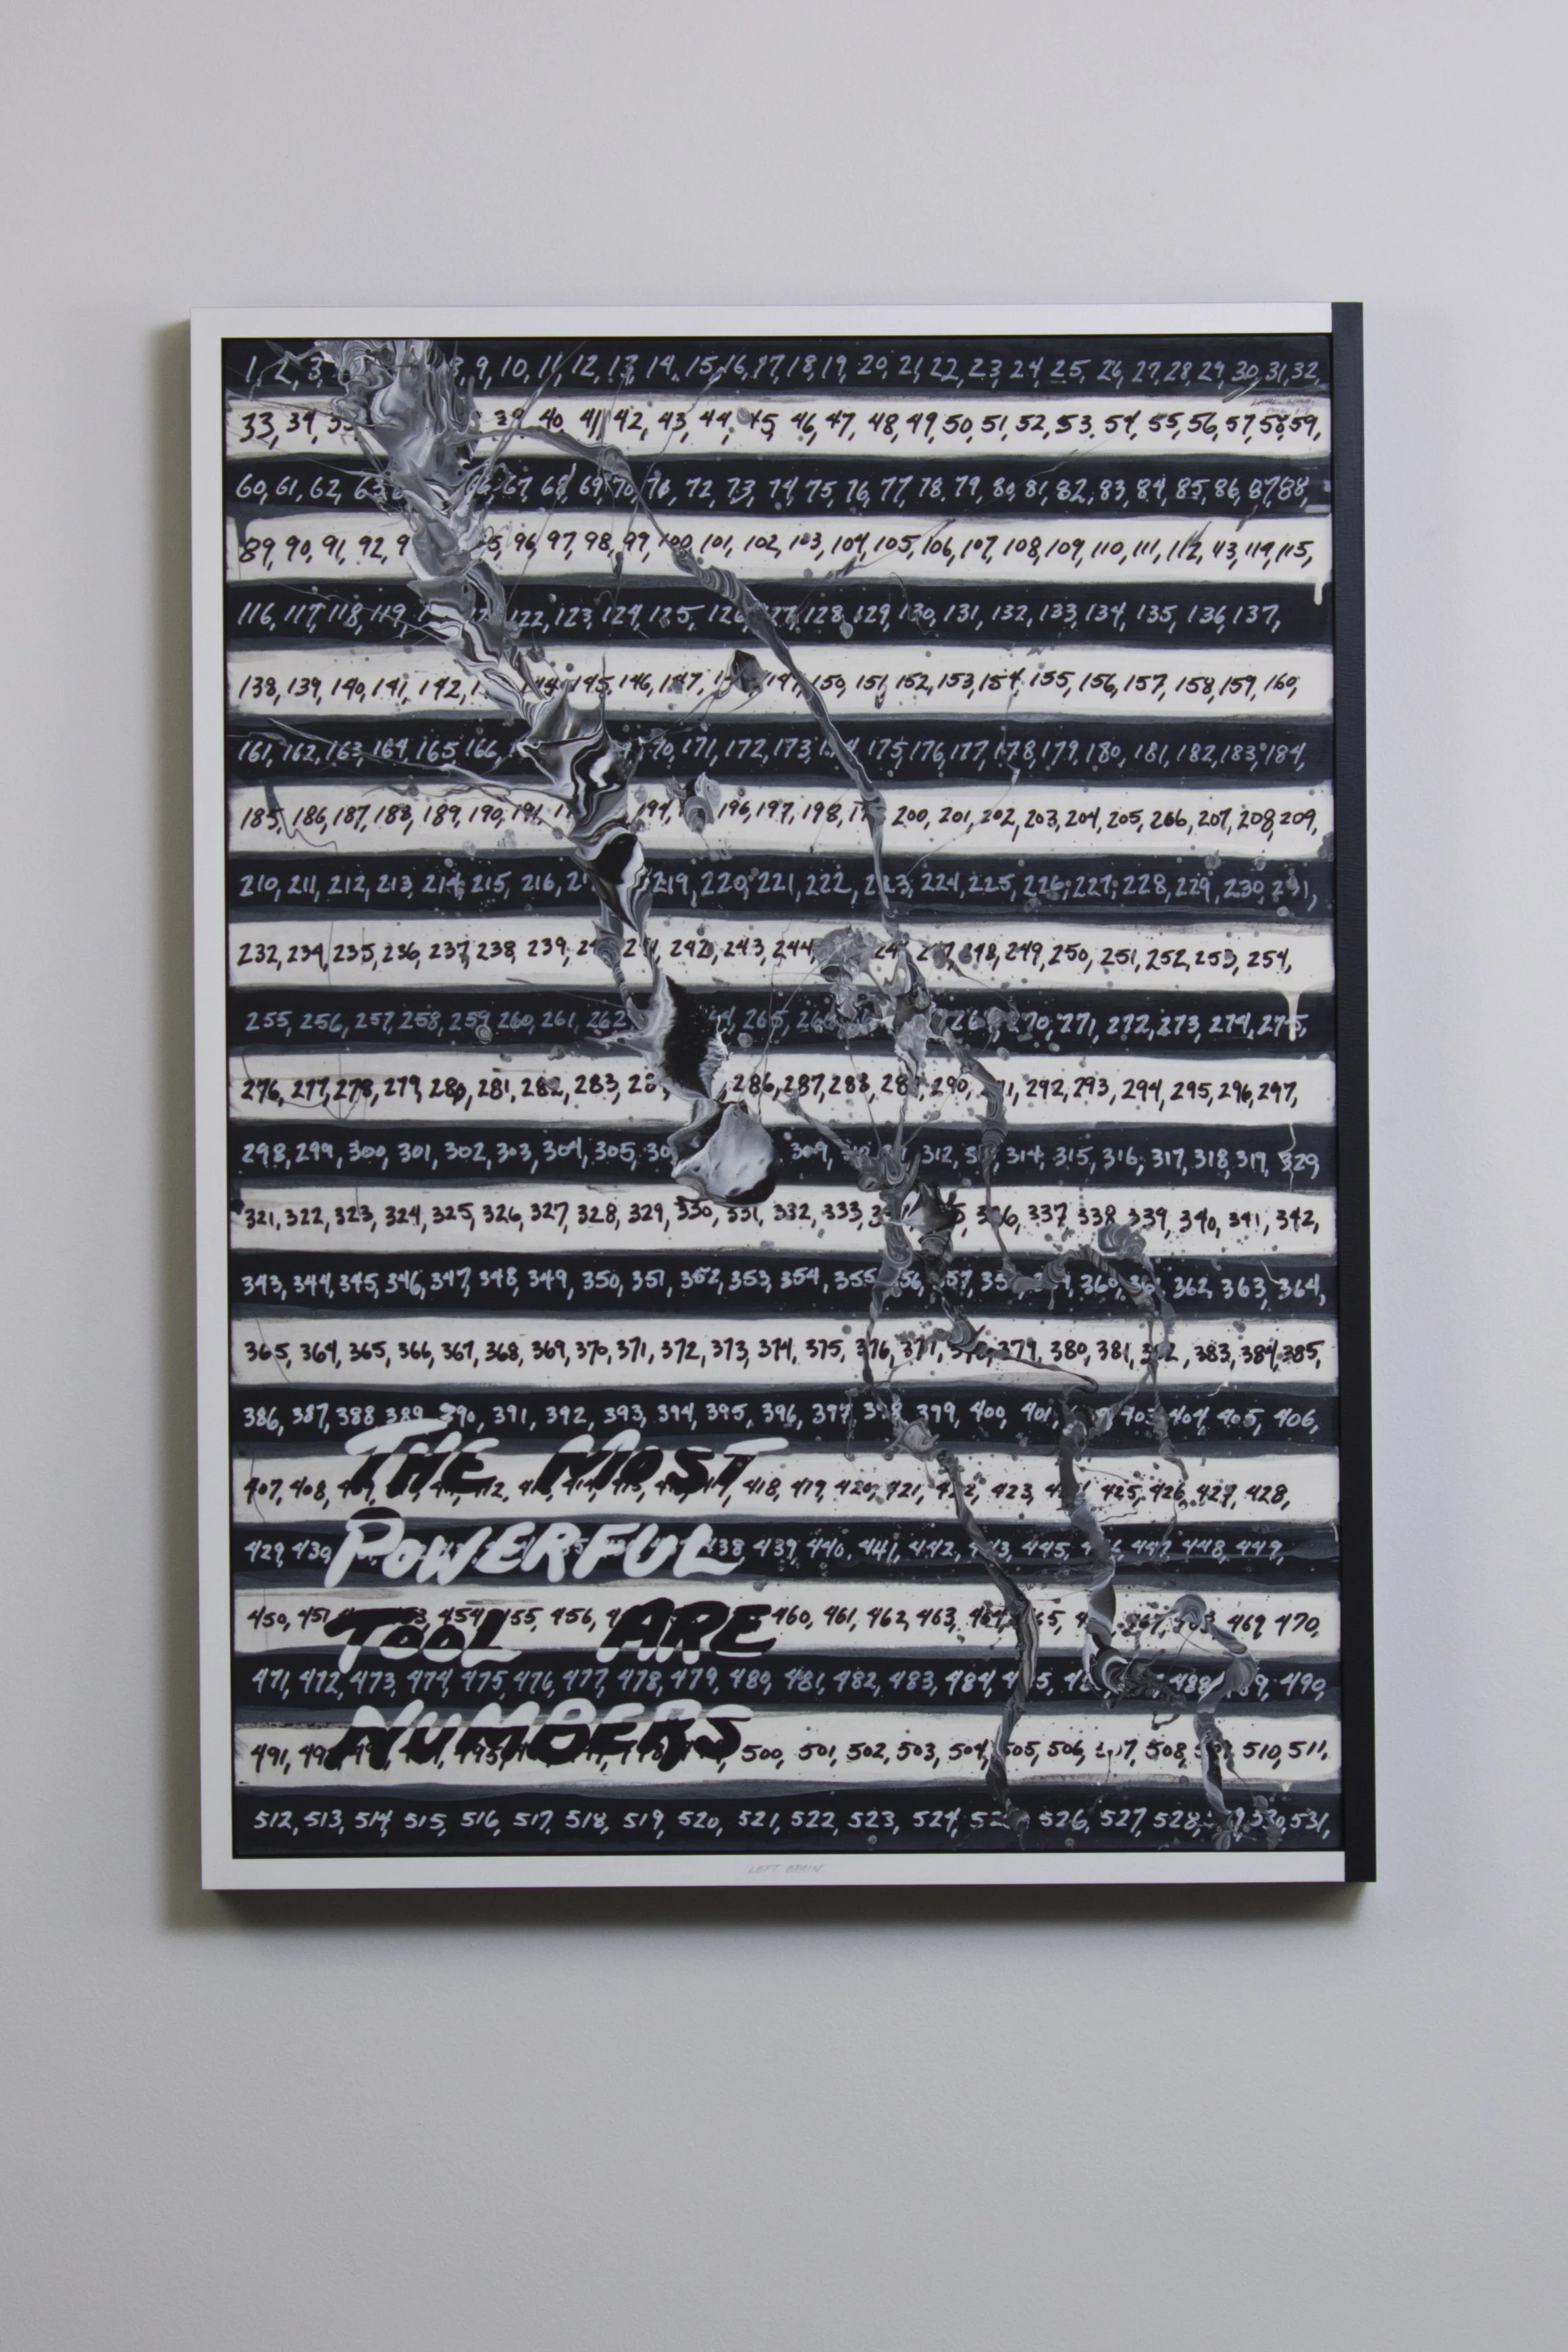 1, 2, 3 9, 10, 11, 12, 13, 14, 15, 16, 17, 18, 19, 20, 21, 22, 23, 24, 25, 26, 27, 28, 29, 30, 31, 32,
33, 34, 39, 40, 41, 42, 43, 44, 45, 46, 47, 48, 49, 50, 51, 52, 53, 54, 55, 56, 57, 58, 59,
60, 61, 62, 67, 68, 69, 70, 71, 72, 73, 74, 75, 76, 77, 78, 79, 80, 81, 82, 83, 84, 85, 86, 87, 88,
89, 90, 91, 92, 96, 97, 98, 99, 100, 101, 102, 103, 104, 105, 106, 107, 108, 109, 110, 111, 112, 113, 114, 115,
116, 117, 118, 119, 122, 123, 124, 125, 126, 127, 128, 129, 130, 131, 132, 133, 134, 135, 136, 137,
138, 139, 140, 141, 142, 144, 145, 146, 147, 149, 150, 151, 152, 153, 154, 155, 156, 157, 158, 159, 160,
161, 162, 163, 164, 165, 166, 171, 172, 173, 175, 176, 177, 178, 179, 180, 181, 182, 183, 184,
185, 186, 187, 188, 189, 190, 191, 194, 196, 197, 198, 200, 201, 202, 203, 204, 205, 206, 207, 208, 209,
210, 211, 212, 213, 214, 215, 216, 219, 220, 221, 222, 223, 224, 225, 226, 227, 228, 229, 230, 231,
232, 234, 235, 236, 237, 238, 239, 242, 243, 244, 248, 249, 250, 251, 252, 253, 254,
255, 256, 257, 258, 259, 260, 261, 262 265, 270, 271, 272, 273, 274, 275,
276, 277, 278, 279, 280, 281, 282, 283, 286, 287, 288, 290, 292, 293, 294, 295, 296, 297,
298, 299, 300, 301, 302, 303, 304, 305, 309, 312, 314, 315, 316, 317, 318, 319, 329
321, 322, 323, 324, 325, 326, 327, 328, 329, 330, 331, 332, 333, 336, 337 338 339, 340, 341, 342,
343, 344, 345, 346, 347, 348, 349, 350, 351, 352, 353, 354, 355 356 357, 360, 362, 363, 364,
365, 364, 365, 366, 367, 368, 369, 370, 371, 372, 373, 374, 375, 376, 377, 379, 380, 381, 383, 384, 385,
386, 387, 388 389 390, 391, 392, 393, 394, 395, 396, 397, 398 399, 400, 401, 403, 404, 405, 406,
407, 408, 418, 419, 420, 421, 422, 423, 425, 426, 427, 428,
THE MOST
429, 430, 438, 439, 440, 441, 442, 443, 445, 447, 448, 449,
POWERFUL
450, 451 454 455, 456, 460, 461, 462, 463, 464, 467, 469, 470,
TOOL ARE
471, 472, 473, 474, 475, 476, 477, 478, 479, 480, 481, 482, 483, 484, 488, 490,
NUMBERS
491, 500, 501, 502, 503, 504, 505, 506, 508, 510, 511,
512, 513, 514, 515, 516, 517, 518, 519, 520, 521, 522, 523, 524, 526, 527, 528, 530, 531,
LEFT BRAIN